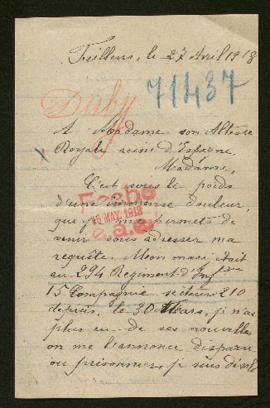 le 27 Avril 1918
71437
A Madame son Altesse
Royale reine d'Espagne
Madame,
C'est sous le poids
d'une immense douleur
que je me permets de
venir vous adresser ma
requête. Mon mari était
au 294 Regiment d'Inf
15 Compagnie secteur 210
depuis le 30 Mars, je n'ai
plus eu de ses nouvelles
on me l'annonce disparu
ou prisonnier, je suis